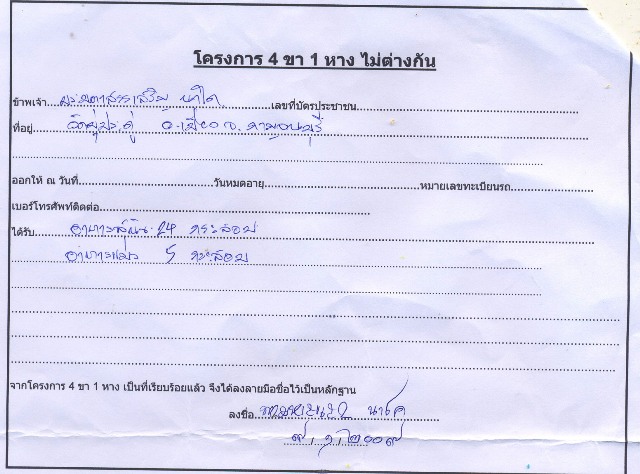 โครงการ 4 ขา 1 หาง ไม่ต่างกัน
ข้าพเจ้า เลขที่บัตรประชาชน
ที่อยู่ อ.เมือง จ.กาญจนบุรี
ออกให้ ณ วันที่ วันหมดอายุ หมายเลขทะเบียนรถ
เบอร์โทรศัพท์ติดต่อ
ได้รับ อาหารสุนัข 24 กระสอบ
อาหารแมว 5 กระสอบ
จากโครงการ 4 ขา 1 หาง เป็นที่เรียบร้อยแล้ว จึงได้ลงลายมือชื่อไว้เป็นหลักฐาน
ลงชื่อ